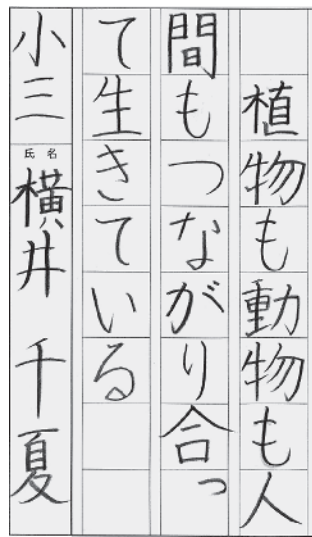 植物も動物も人
間もつながり合っ
て生きている
小三
氏名
横井 千夏